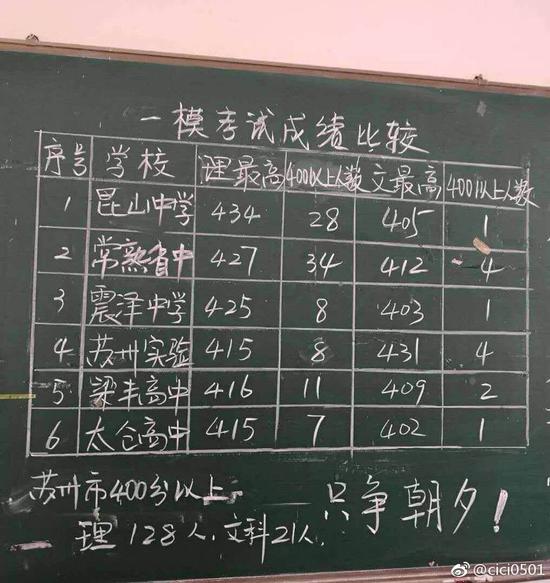 一模考试成绩比较
序号 学校 理最高 400以上人数 文最高 400以上人数
1 昆山中学 434 28 405 1
2 常熟省中 427 34 412 4
3 震泽中学 425 8 403 1
4 苏州实验 415 8 431 4
5 梁丰高中 416 11 409 2
6 太仓高中 415 7 402 1
苏州市400分以上
理128人,文科21人
只争朝夕!
@cici0501